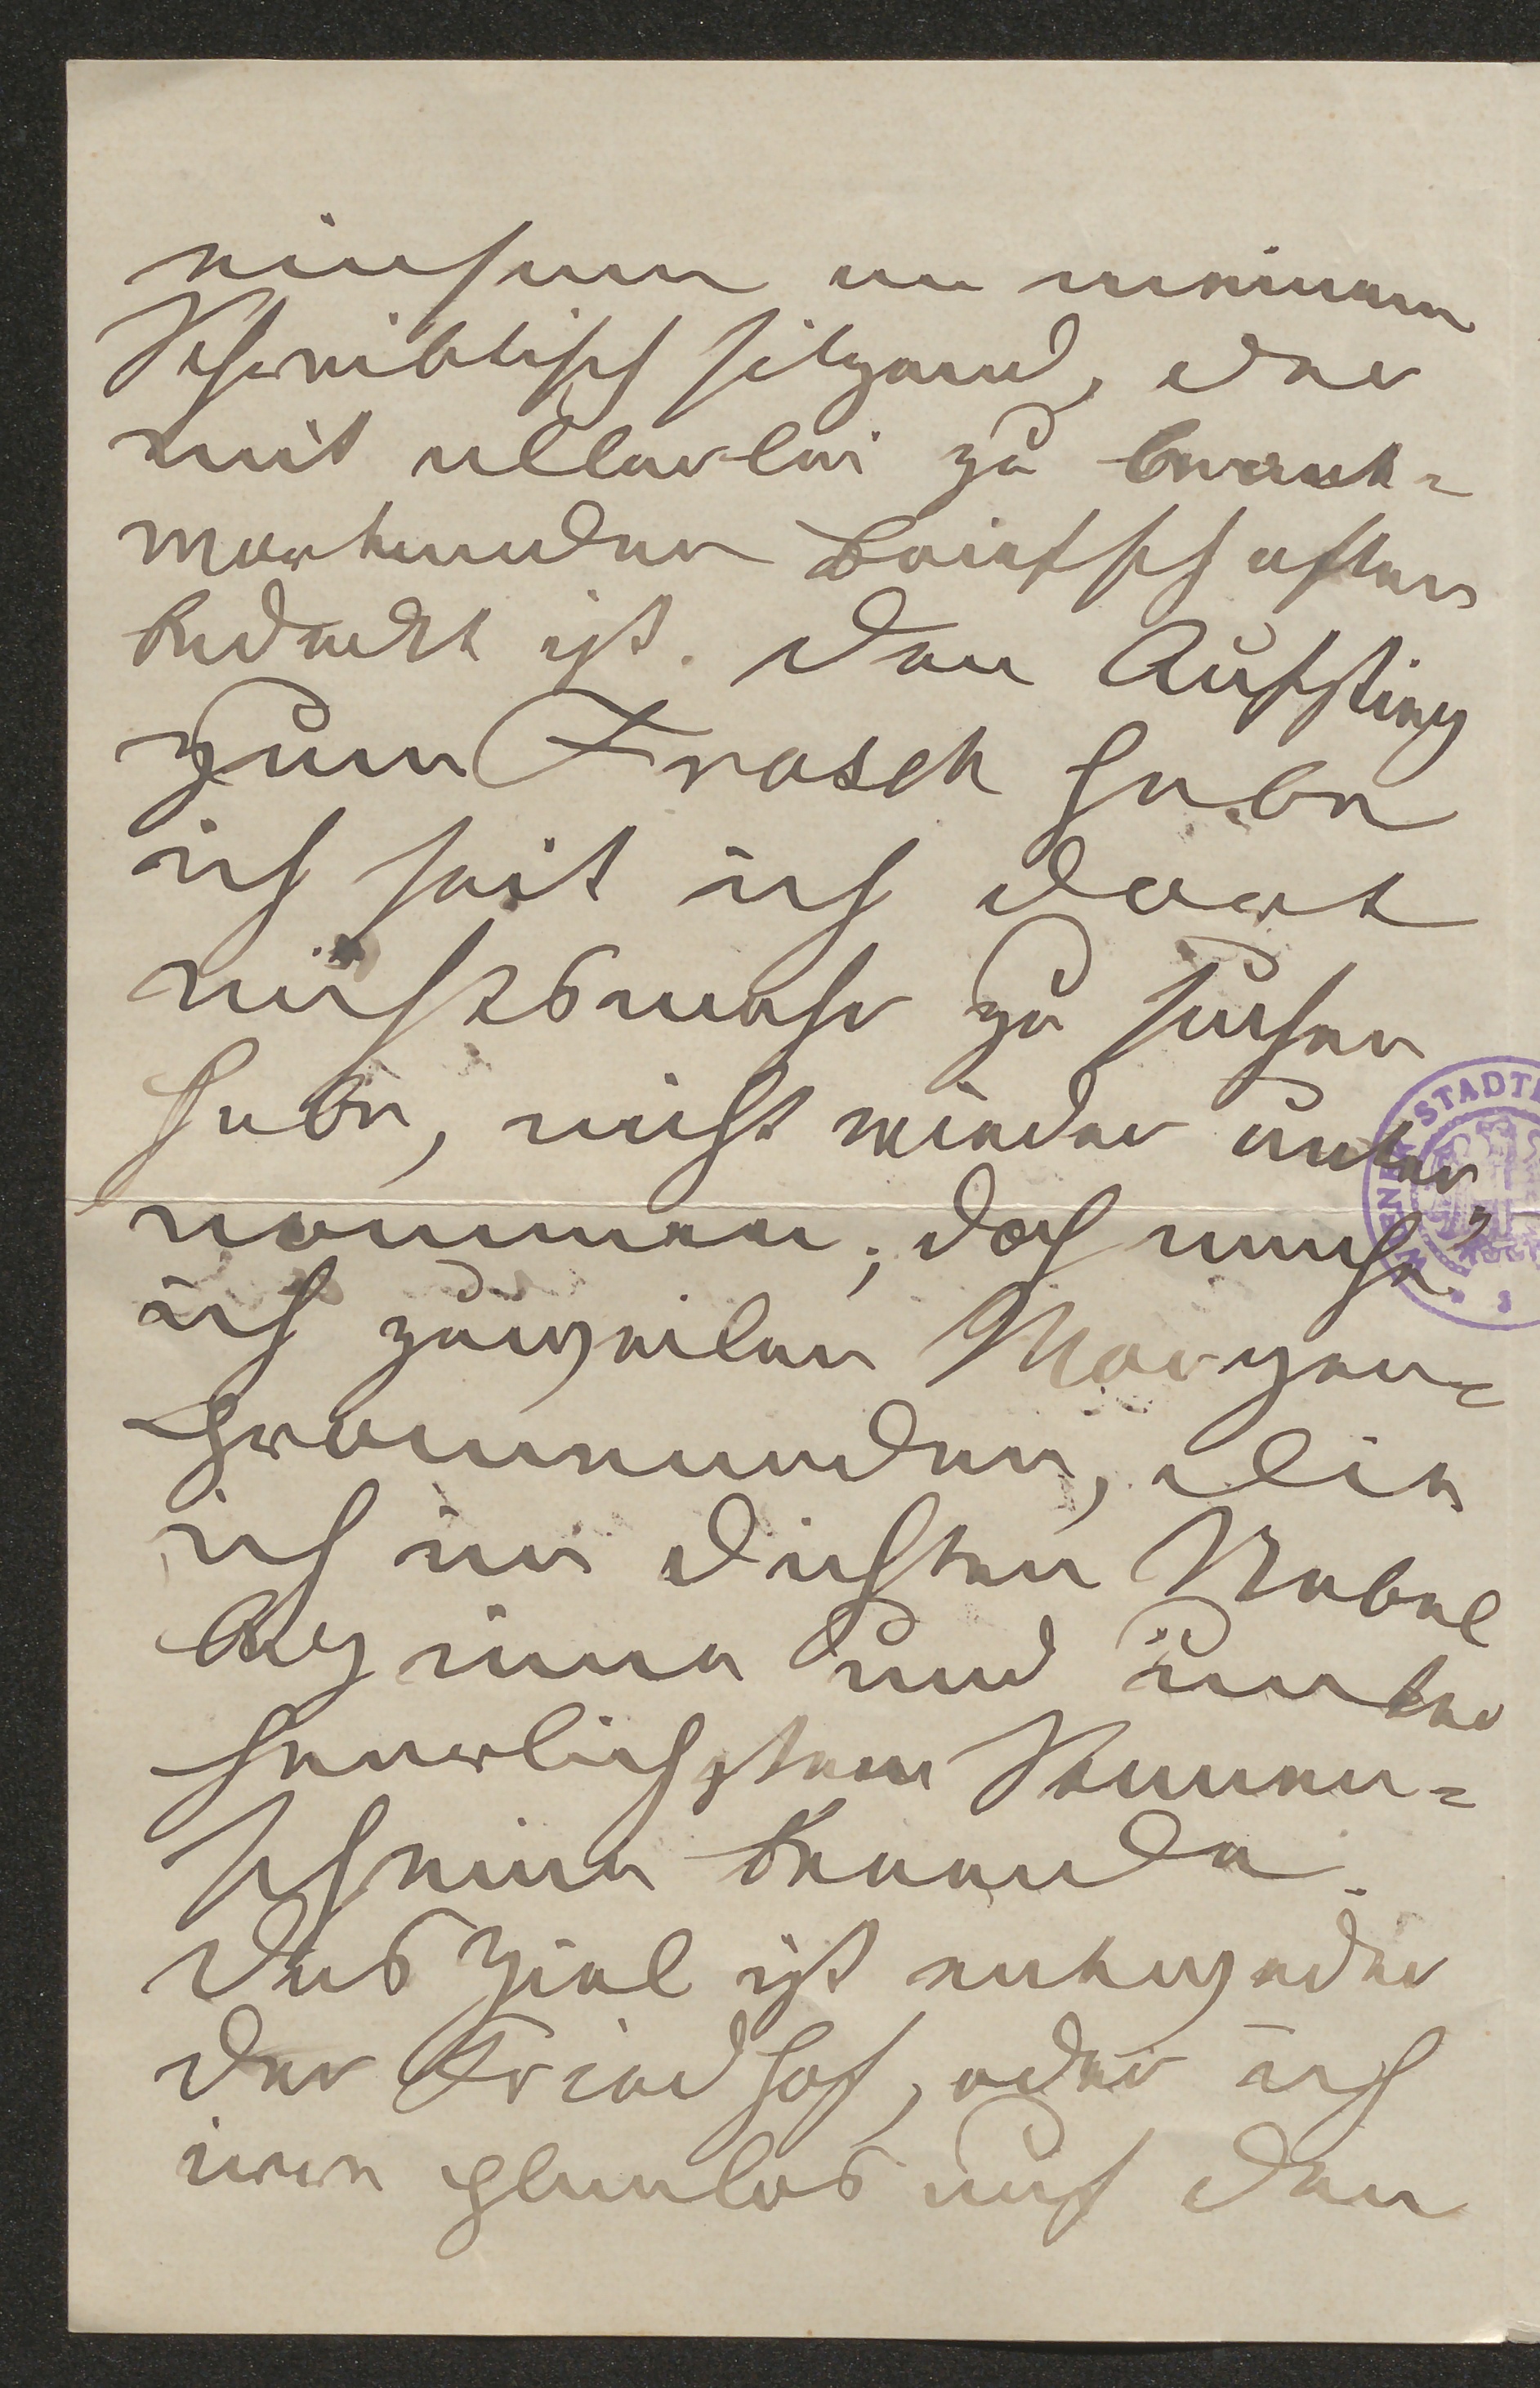 einsam an meinem
Schreibtisch sitzend, der
mit allerlei zu beant-
wortenden Briefschaften
bedeckt ist. Den Aufstieg
zum Frosch habe
ich seit ich dort
nichts mehr zu suchen
habe, nicht wieder unter-
nommen; doch mache
ich zuweilen Morgen-
promenaden, die
ich im dichten Nebel
beginne und unter
herrlichstem Sonnen-
schein beende.
Das Ziel ist entweder
der Friedhof, oder ich
irre planlos auf den
STADT